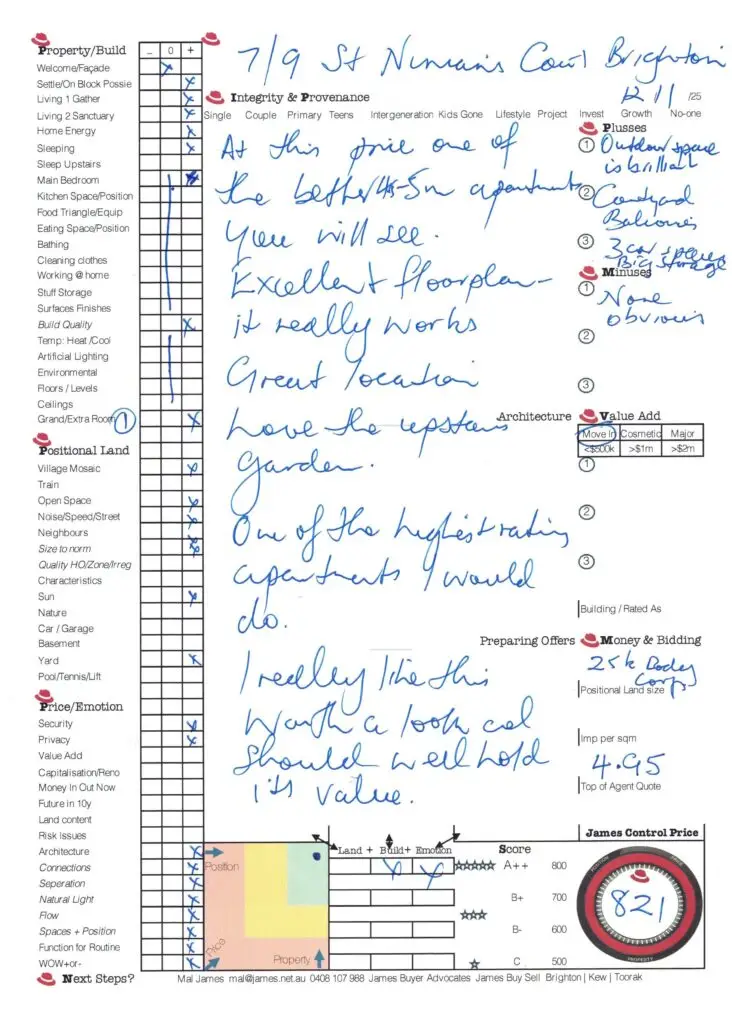 Property/Build - 0 +
7/9 St Ninians Court Brighton
12/1 /25
Welcome/Façade x
Settle/On Block Possie x
Living 1 Gather x
Integrity & Provenance
Living 2 Sanctuary x
Single Couple Primary Teens Intergeneration Kids Gone Lifestyle Project Invest Growth No-one
Home Energy x
Sleeping x
Sleep Upstairs
Main Bedroom x
Kitchen Space/Position
Food Triangle/Equip
Eating Space/Position
Bathing
Cleaning clothes
Working @ home
Stuff Storage
Surfaces Finishes
Build Quality x
Temp: Heat /Cool
Artificial Lighting
Environmental
Floors / Levels
Ceilings
Grand/Extra Room 1 x
Positional Land
Village Mosaic x
Train
Open Space x
Noise/Speed/Street x
Neighbours x
Size to norm x
Quality HO/Zone/Irreg
Characteristics
Sun x
Nature
Car / Garage
Basement
Yard x
Pool/Tennis/Lift
Price/Emotion
Security x
Privacy x
Value Add
Capitalisation/Reno
Money In Out Now
Future in 10y
Land content
Risk Issues
Architecture x
Connections x
Seperation x
Natural Light x
Flow x
Spaces + Position x
Function for Routine x
WOW+or- x
Next Steps?
At this price one of
the better 4.5-5m apartments
you will see.
Excellent floorplan -
it really works
Great location
Love the upstairs
garden.
One of the highest rating
apartments I would
do.
I really like this
Worth a look and
should well hold
its value.
Plusses
1 Outdoor space
is brilliant
2 Courtyard
Balconies
3 3 car spaces
Big Storage
Minuses
1 None
obvious
2
3
Architecture Value Add
Move In Cosmetic Major
<$500k >$1m >$2m
1
2
3
Building / Rated As
Preparing Offers Money & Bidding
25k Body
Corp
Positional Land size
Imp per sqm
4.95
Top of Agent Quote
Position
Price
Property
Land + Build + Emotion
x x
Score
A++ 800
B+ 700
B- 600
C 500
James Control Price
POSITION
PRICE
821
PROPERTY
Mal James mal@james.net.au 0408 107 988 James Buyer Advocates James Buy Sell Brighton | Kew | Toorak